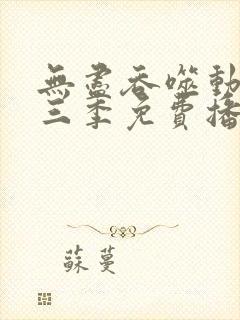 無盡吞噬動
三季免費播
蘇蔓